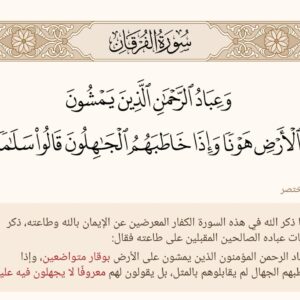 سُورَةُ الفُرْقَانِ
وَعِبَادُ ٱلرَّحْمَٰنِ ٱلَّذِينَ يَمْشُونَ
ٱلْأَرْضِ هَوْنًا وَإِذَا خَاطَبَهُمُ ٱلْجَٰهِلُونَ قَالُوا۟ سَلَٰمًا
مختصر
ذكر الله في هذه السورة الكفار المعرضين عن الإيمان بالله وطاعته، ذكر
عباده الصالحين المقبلين على طاعته فقال:
الرحمن المؤمنون الذين يمشون على الأرض بوقار متواضعين، وإذا
الجهال لم يقابلوهم بالمثل، بل يقولون لهم معروفًا لا يجهلون فيه